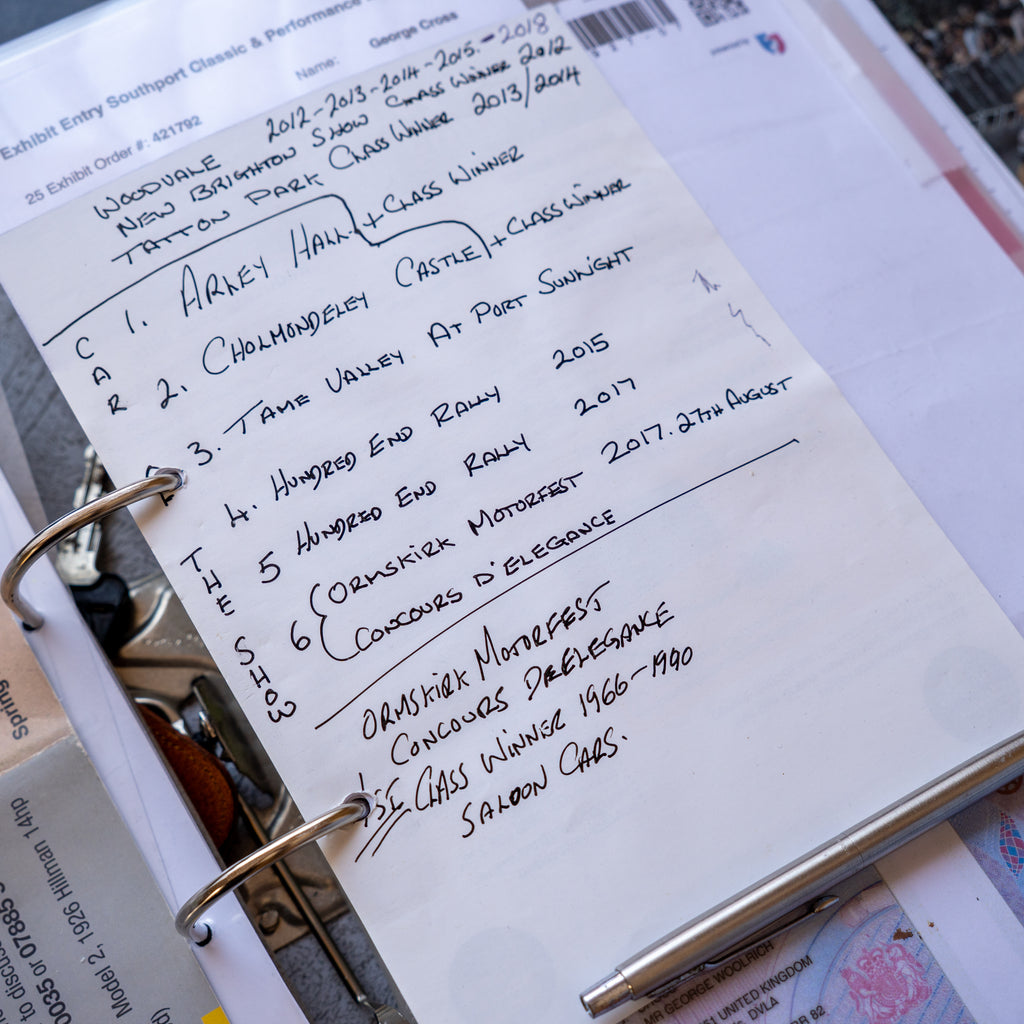 Exhibit Entry Southport Classic & Performance
Name:
George Cross
25 Exhibit Order #: 421792
WOODVALE 2012-2013-2014-2015.-2018
NEW BRIGHTON SHOW CLASS WINNER 2012
TATTON PARK CLASS WINNER 2013/2014
1. ARLEY HALL + CLASS WINNER
2. CHOLMONDELEY CASTLE + CLASS WINNAR
3. TAME VALLEY AT PORT SUNNIGHT
4. HUNDRED END RALLY 2015
5 HUNDRED END RALLY 2017
6 ORMSKIRK MOTORFEST 2017. 27TH AUGUST
CONCOURS D'ELEGANCE
CAR
THE SHOW
ORMSKIRK MOTORFEST
CONCOURS DE ELEGANCE
1ST CLASS WINNER 1966-1990
SALOON CARS.
Spring
Model 2, 1926 Hillman 14hp
to discuss
0035 or 07885
MR GEORGE WOOLRICH
UNITED KINGDOM
DVLA